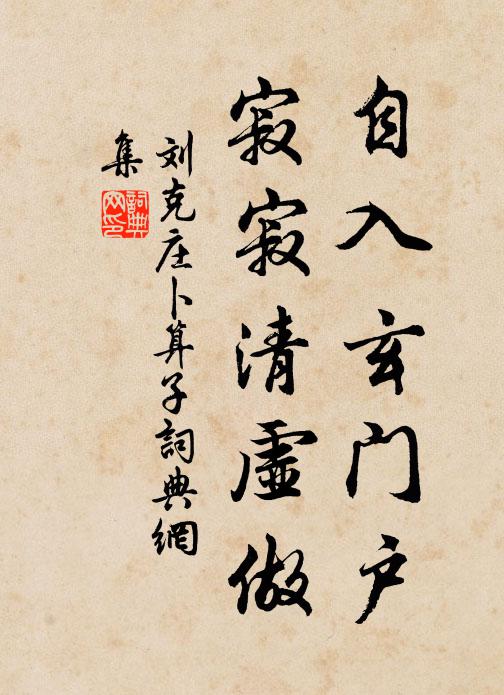 自入玄门户
寂寂清虚做
刘克庄卜算子詞典網
集
詞典
网印